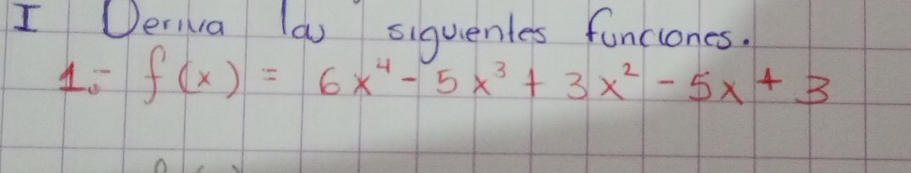 I Deriva las siguientes funciones.
1.- f(x) = 6x⁴ - 5x³ + 3x² - 5x + 3